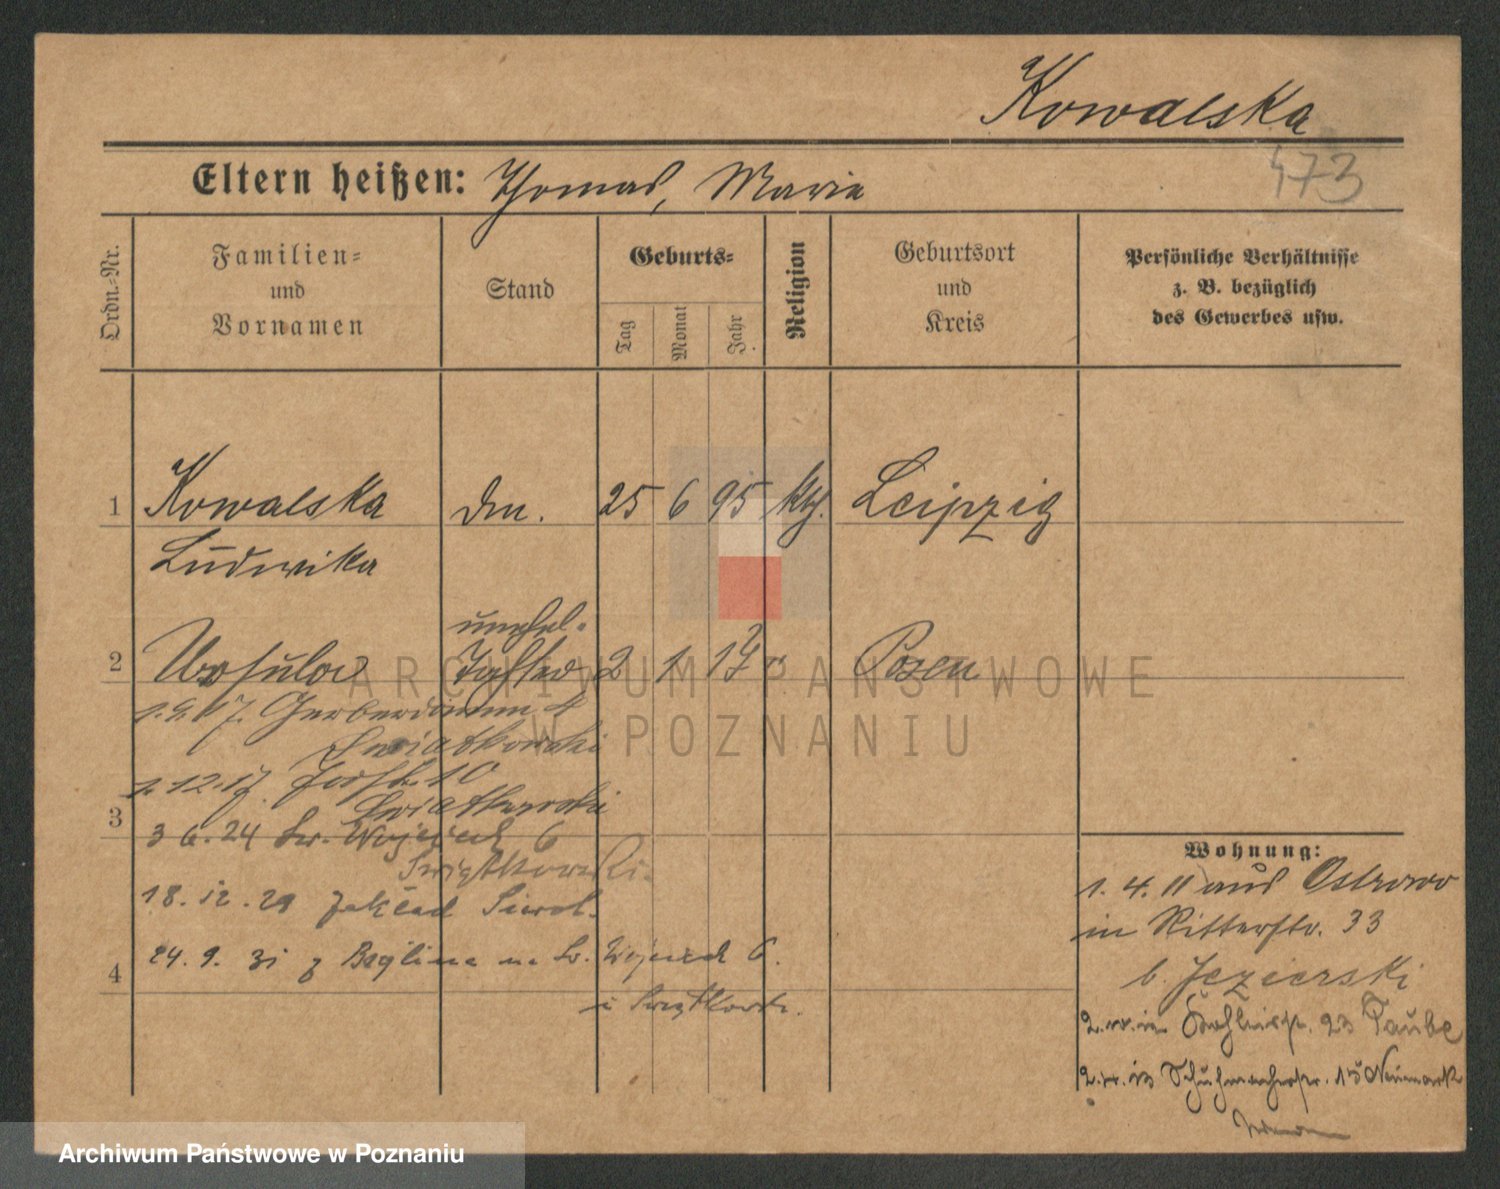 Kowalska
473
Eltern heißen: Thomas, Marie
Ordn.-Nr.
Familien-
und
Vornamen
Stand
Geburts-
Tag
Monat
Jahr
Religion
Geburtsort
und
Kreis
Persönliche Verhältnisse
z. B. bezüglich
des Gewerbes usw.
1 Kowalska 25 6 95 kth. Leipzig
Ludwika
unehel.
2 Ursula Tochter 2 1 17 Posen
ARCHIWUM PAŃSTWOWE
W POZNANIU
1.9.17. Gerberdamm 4
Swiatkowski
1.12.17 10
Swiatkowski
3
3 6. 24 Św. Wojciech 6
Swiątkowski.
18. 12. 29 Zakład
4 24. 9. 31 z na Św. Wojciech 6.
u Swiątkowsk.
Wohnung:
1. 4. 11 aus Ostrowo
in Ritterstr. 33
b. Jezierski
23 Taube
Schuhmacherstr. 15 Neumark
Archiwum Państwowe w Poznaniu